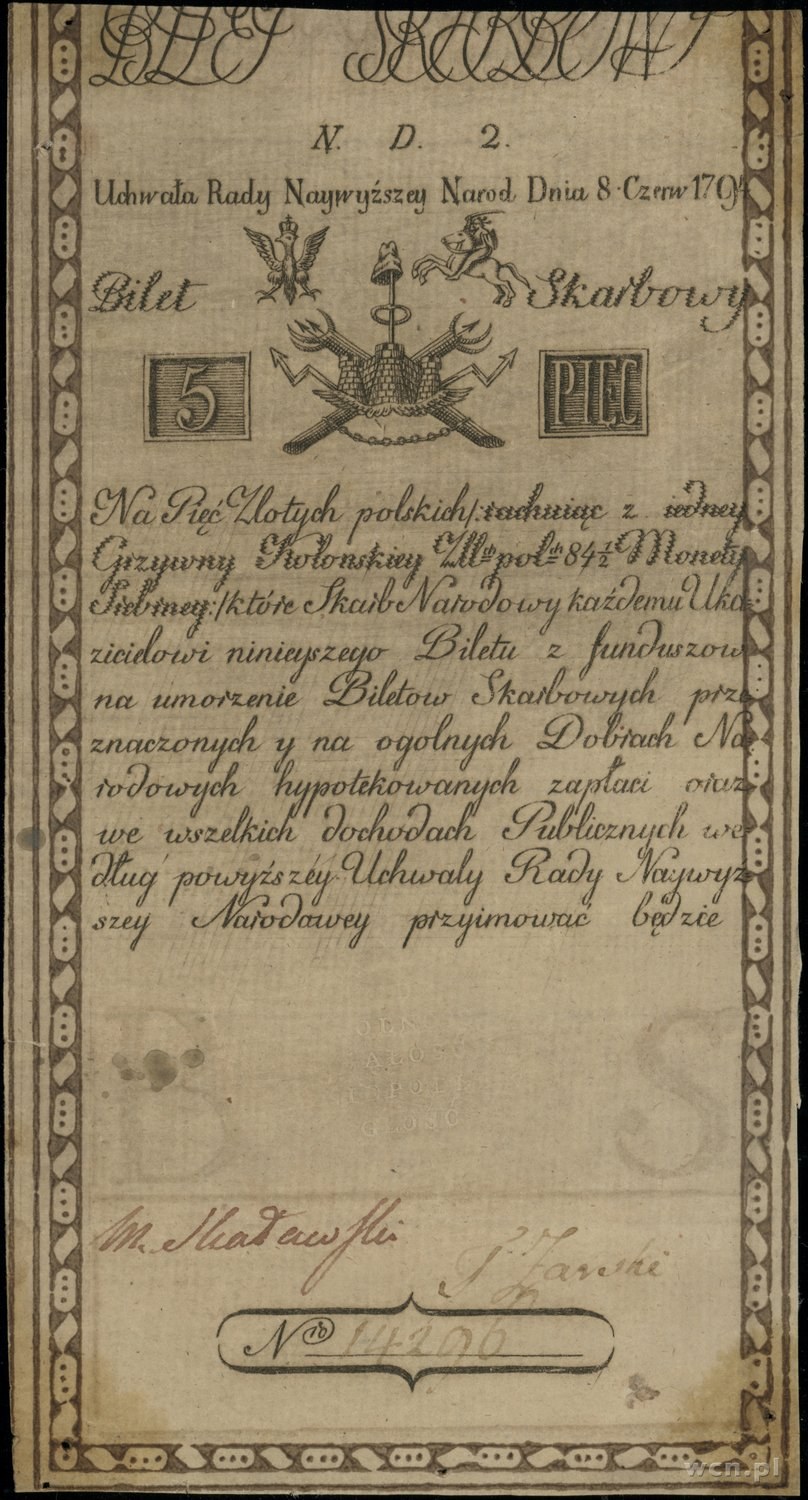 BILET SKARBOWY
N. D. 2.
Uchwała Rady Naywyźszey Narod Dnia 8 Czerw 1794
Bilet Skarbowy
5 PIĘC
Na Pięć Złotych polskich/:rachuiąc z iedney
Grzywny Kolonskiey Złł. pol. 84½ Monety
Srebrney:/które Skarb Narodowy każdemu Uka
zicielowi ninieyszego Biletu z funduszow
na umorzenie Biletow Skarbowych prze
znaczonych y na ogolnych Dobrach Na
rodowych hypotekowanych zapłaci oraz
we wszelkich dochodach Publicznych we
dług powyźszéy Uchwały Rady Naywyź
szey Narodowey przyimować będzie
B S
M. Skaławski
Żarski
N<sup>ro</sup> 14296
wcn.pl